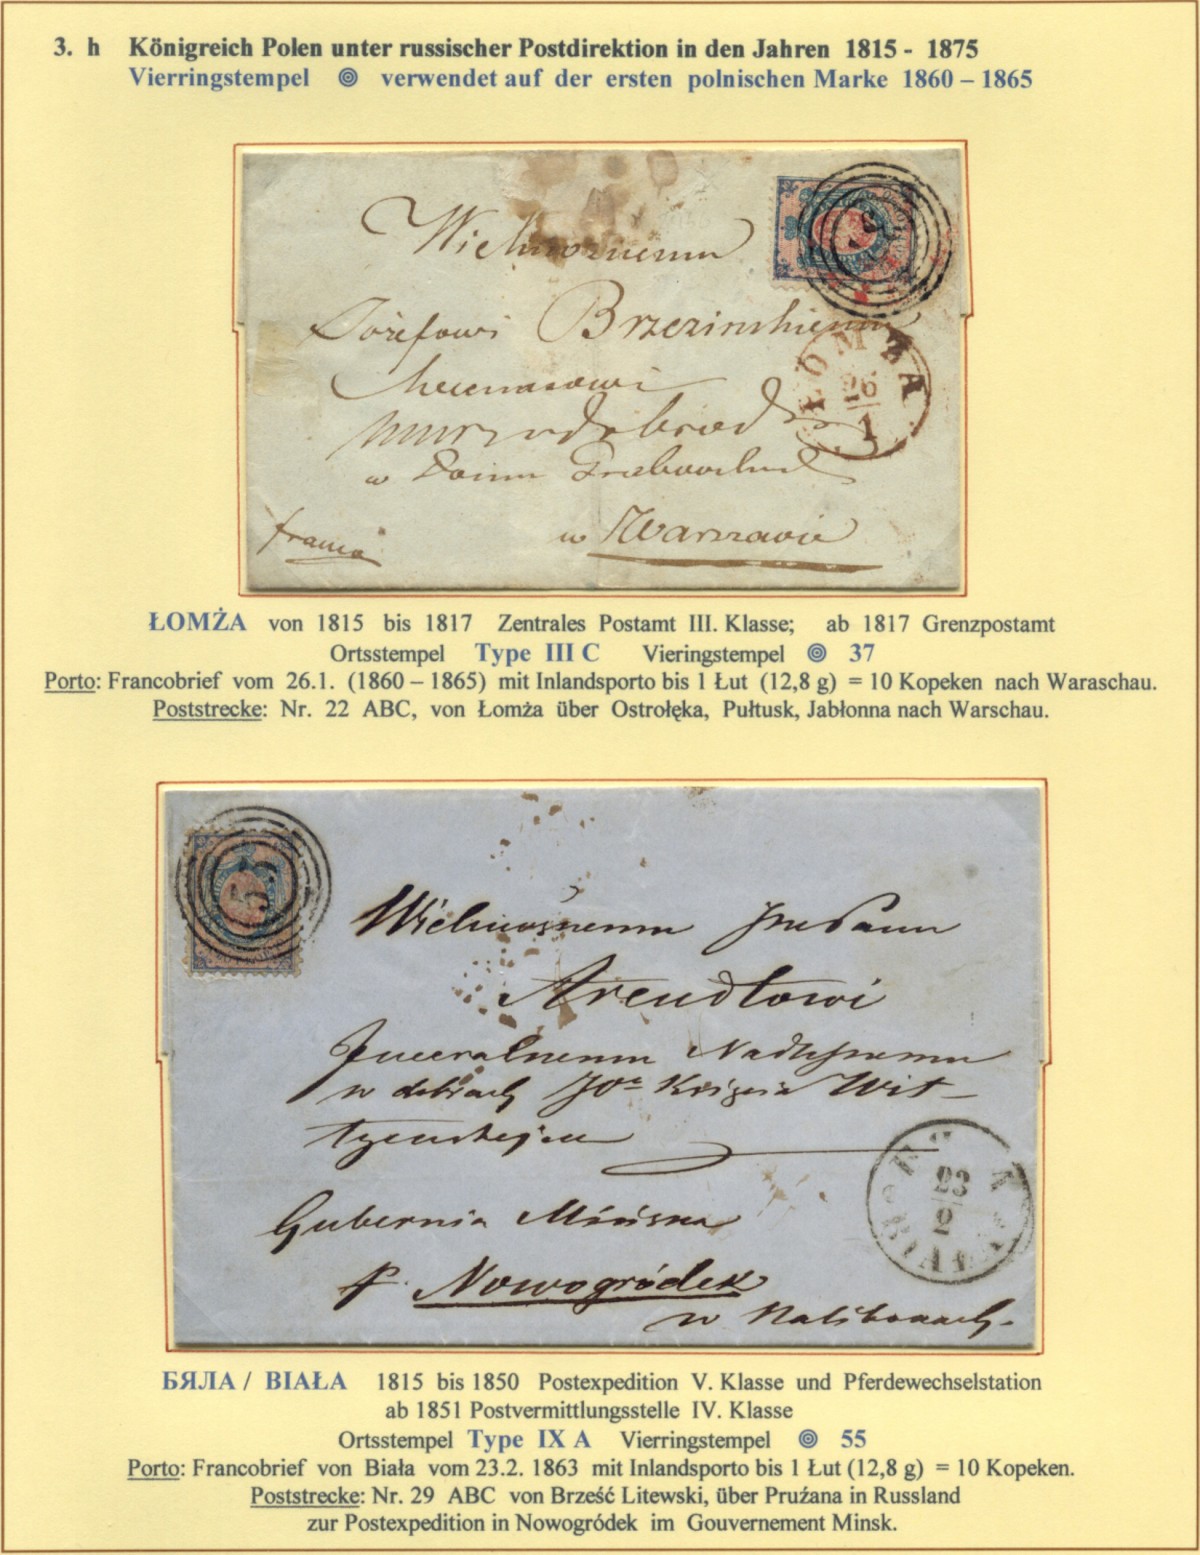 3. h Königreich Polen unter russischer Postdirektion in den Jahren 1815 - 1875
Vierringstempel verwendet auf der ersten polnischen Marke 1860 – 1865
Wielmożnemu
Józefowi Brzezińskiemu
Mecenasowi
w Domu
w Warszawie
franco
ŁOMŻA
26
1
ŁOMŻA von 1815 bis 1817 Zentrales Postamt III. Klasse; ab 1817 Grenzpostamt
Ortsstempel Type III C Vieringstempel 37
Porto: Francobrief vom 26.1. (1860 – 1865) mit Inlandsporto bis 1 Łut (12,8 g) = 10 Kopeken nach Waraschau.
Poststrecke: Nr. 22 ABC, von Łomża über Ostrołęka, Pułtusk, Jabłonna nach Warschau.
55
Wielmożnemu Panu
Arendtowi
Jeneralnemu Nadleśnemu
w dobrach Xięcia Wit-
Gubernia Mińska
p. Nowogródek
w Nalibokach.
23
2
BIAŁA
БЯЛА / BIAŁA 1815 bis 1850 Postexpedition V. Klasse und Pferdewechselstation
ab 1851 Postvermittlungsstelle IV. Klasse
Ortsstempel Type IX A Vierringstempel 55
Porto: Francobrief von Biała vom 23.2. 1863 mit Inlandsporto bis 1 Łut (12,8 g) = 10 Kopeken.
Poststrecke: Nr. 29 ABC von Brześć Litewski, über Pruźana in Russland
zur Postexpedition in Nowogródek im Gouvernement Minsk.